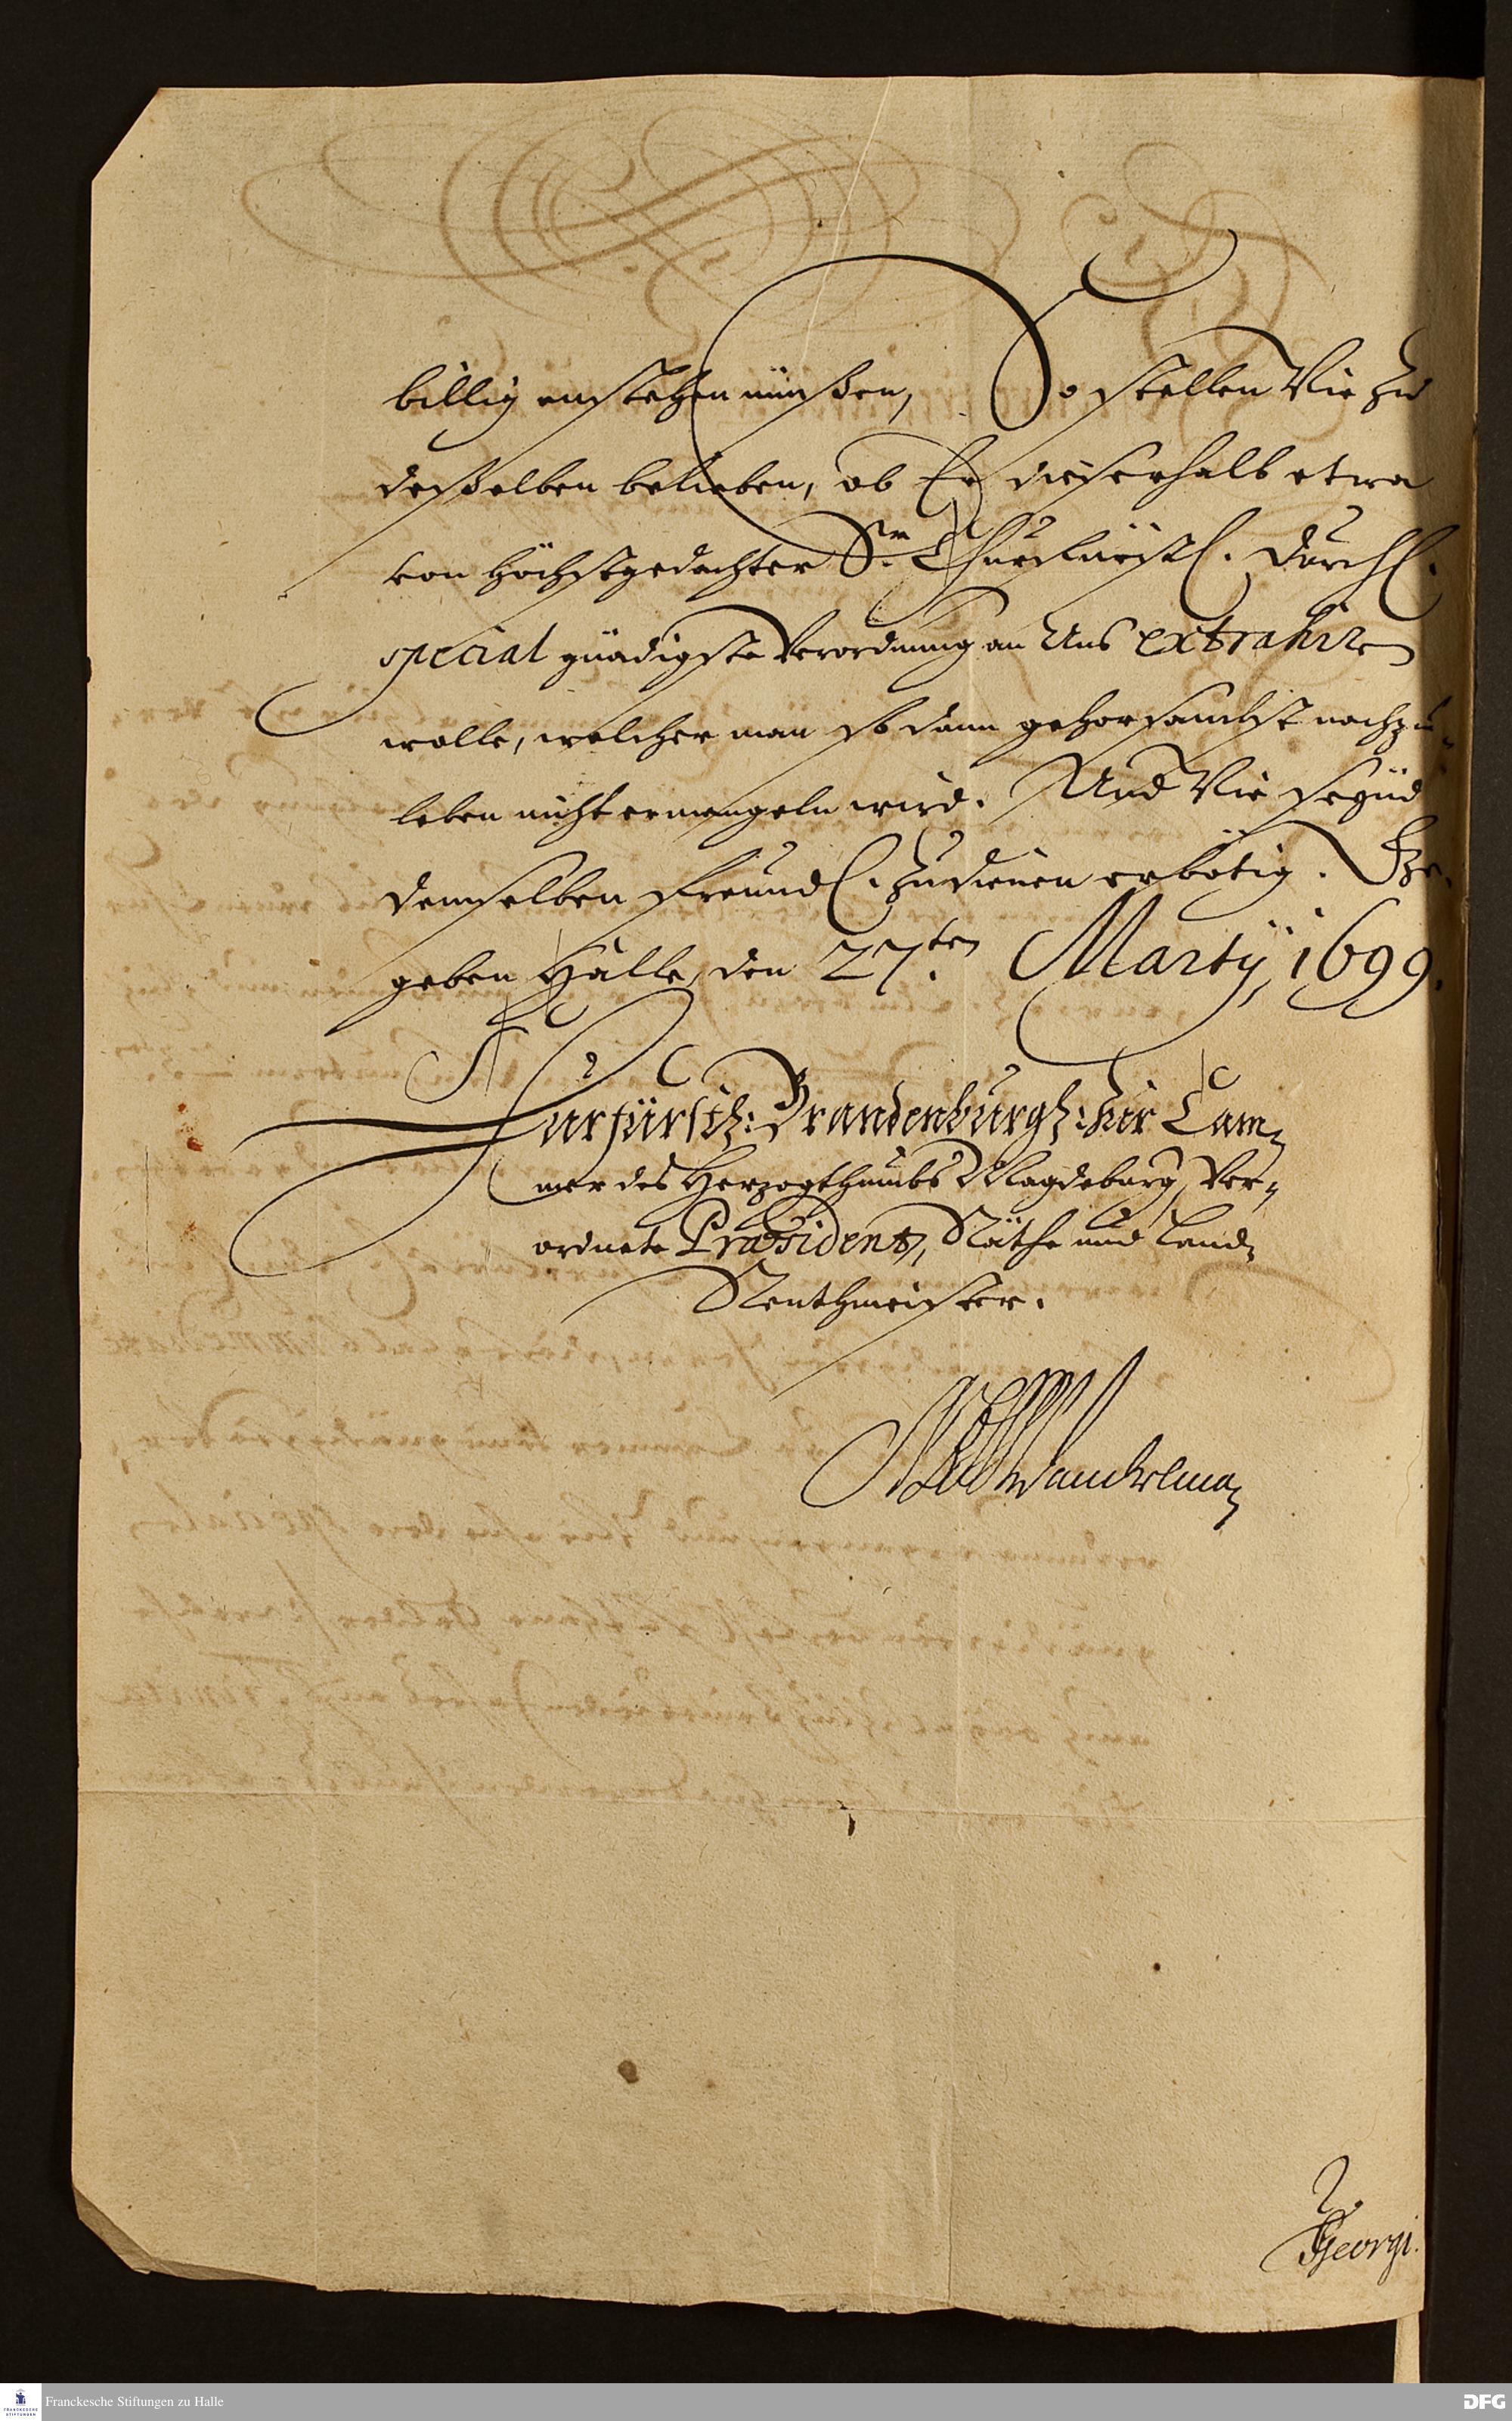 billig anstehen müßen, So stellen Wir zu
deßelben belieben, ob Er dieserhalb etwa
von Höchstgedachter Sr. Churfürstl. Durchl.
special gnädigste Verordnung an Uns extrahiren
wolle, welcher man so dann gehorsambst nachzu-
leben nicht ermangeln wird. Und Wir seynd
demselben freundl. zu dienen erbötig. Ge-
geben Halle, den 27.ten Martij, 1699.
Churfürstl: Brandenburgl: zur Cam-
mer des Herzogthumbs Magdeburg, Ver-
ordnete Præsident, Räthe und Land-
Renthmeister.
Danckelman
Georgi.
Franckesche Stiftungen zu Halle
FRANCKESCHE
STIFTUNGEN
DFG